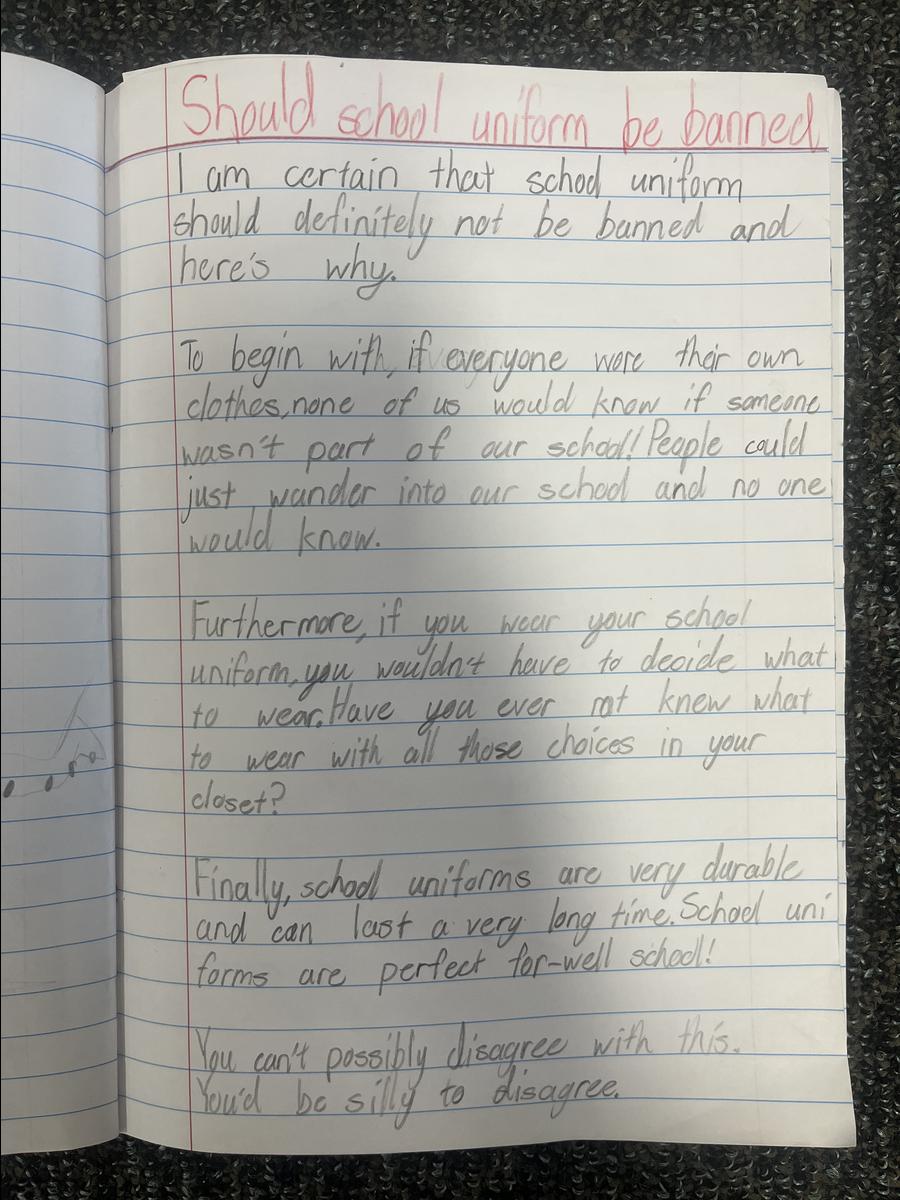 Should school uniform be banned
I am certain that school uniform
should definitely not be banned and
here's why.
To begin with, if everyone wore their own
clothes, none of us would know if someone
wasn't part of our school! People could
just wander into our school and no one
would know.
Furthermore, if you wear your school
uniform, you wouldn't have to decide what
to wear. Have you ever not knew what
to wear with all those choices in your
closet?
Finally, school uniforms are very durable
and can last a very long time. School uni
forms are perfect for-well school!
You can't possibly disagree with this.
You'd be silly to disagree.